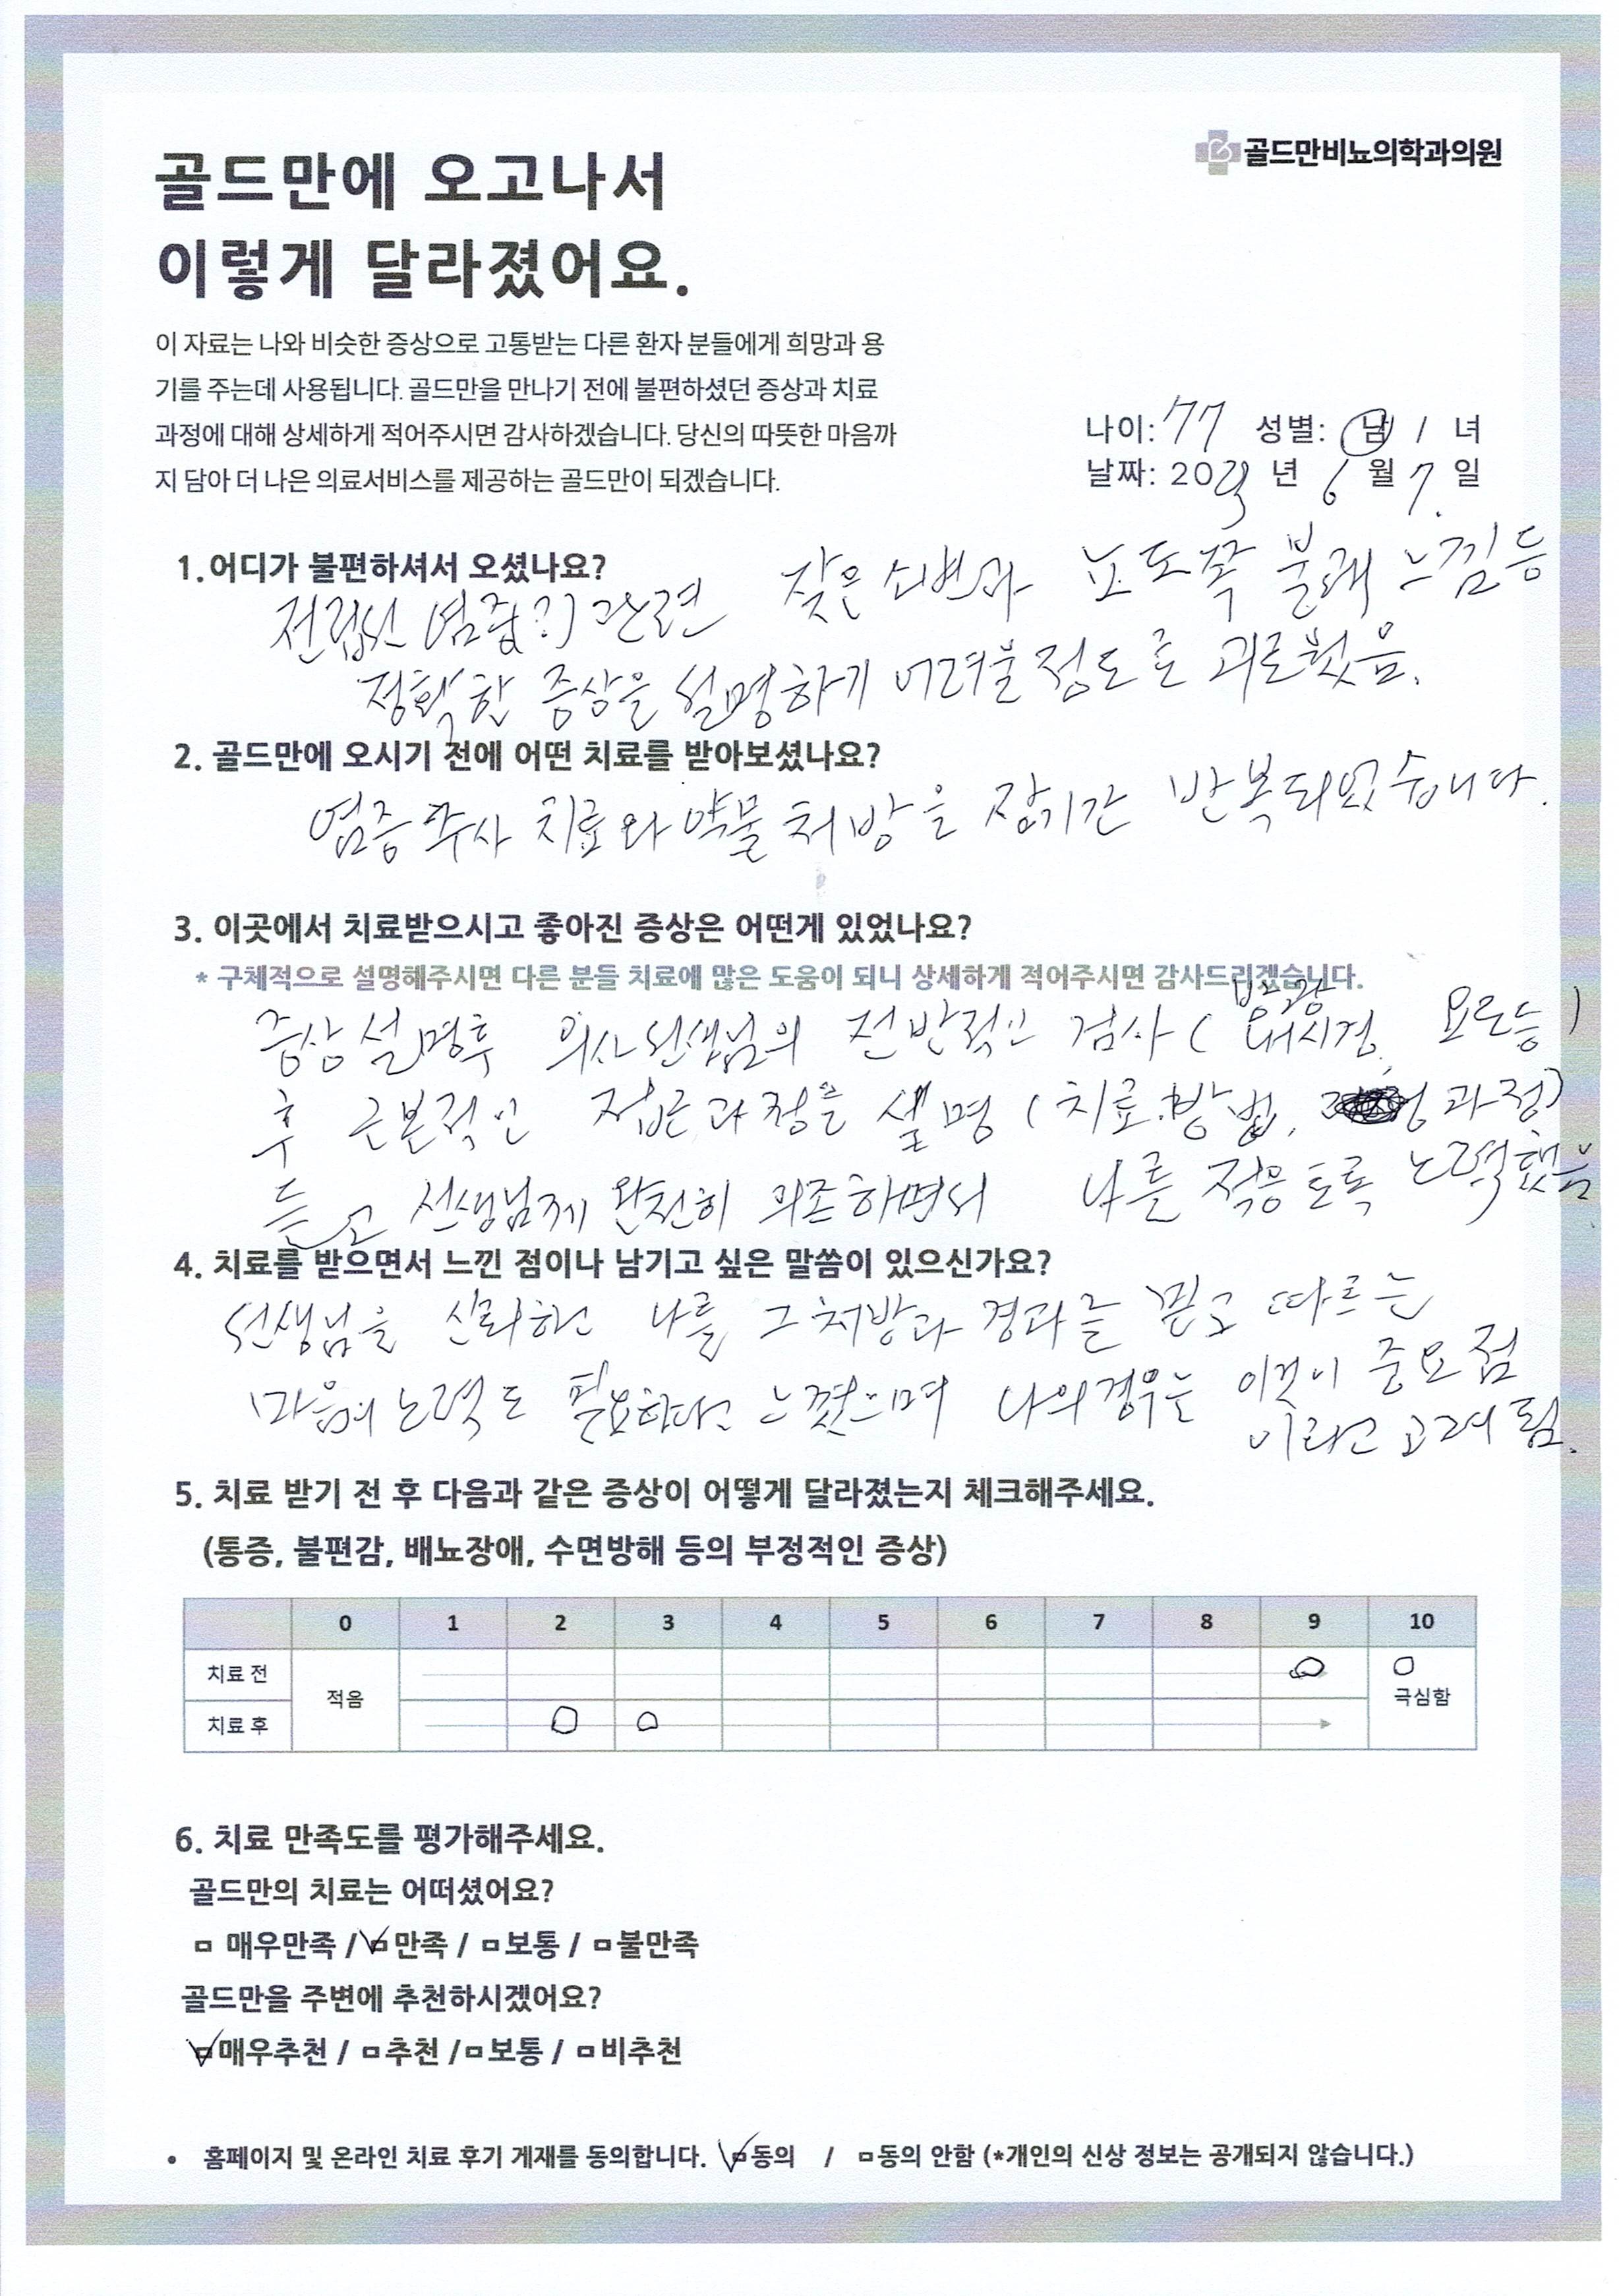 골드만비뇨의학과의원
골드만에 오고나서
이렇게 달라졌어요.
이 자료는 나와 비슷한 증상으로 고통받는 다른 환자 분들에게 희망과 용
기를 주는데 사용됩니다. 골드만을 만나기 전에 불편하셨던 증상과 치료
과정에 대해 상세하게 적어주시면 감사하겠습니다. 당신의 따뜻한 마음까
지 담아 더 나은 의료서비스를 제공하는 골드만이 되겠습니다.
나이: 77 성별: 남 / 녀
날짜: 20 년 6 월 7. 일
1. 어디가 불편하셔서 오셨나요?
전립선 염증(?) 관련 잦은 소변과 뇨도쪽 불쾌 느낌 등
정확한 증상을 설명하기 어려울 정도로 괴로웠음.
2. 골드만에 오시기 전에 어떤 치료를 받아보셨나요?
염증 주사 치료와 약물 처방을 장기간 반복되었습니다.
3. 이곳에서 치료받으시고 좋아진 증상은 어떤게 있었나요?
* 구체적으로 설명해주시면 다른 분들 치료에 많은 도움이 되니 상세하게 적어주시면 감사드리겠습니다.
방광
증상 설명후 의사선생님의 전반적인 검사 ( 내시경, 요로등 )
후 근본적인 접근과정을 설명 ( 치료.방법, 과정)
듣고 선생님께 완전히 의존하면서 나를 적응토록 노력했음
4. 치료를 받으면서 느낀 점이나 남기고 싶은 말씀이 있으신가요?
선생님을 신뢰하는 나를 그 처방과 경과를 믿고 따르는
마음의 노력도 필요하다고 느꼈으며 나의경우는 이것이 중요점
이라고 고려됨.
5. 치료 받기 전 후 다음과 같은 증상이 어떻게 달라졌는지 체크해주세요.
(통증, 불편감, 배뇨장애, 수면방해 등의 부정적인 증상)
0 1 2 3 4 5 6 7 8 9 10
치료 전
적음
극심함
치료 후
6. 치료 만족도를 평가해주세요.
골드만의 치료는 어떠셨어요?
매우만족 / 만족 / 보통 / 불만족
골드만을 주변에 추천하시겠어요?
매우추천 / 추천 / 보통 / 비추천
• 홈페이지 및 온라인 치료 후기 게재를 동의합니다. 동의 / 동의 안함 (*개인의 신상 정보는 공개되지 않습니다.)